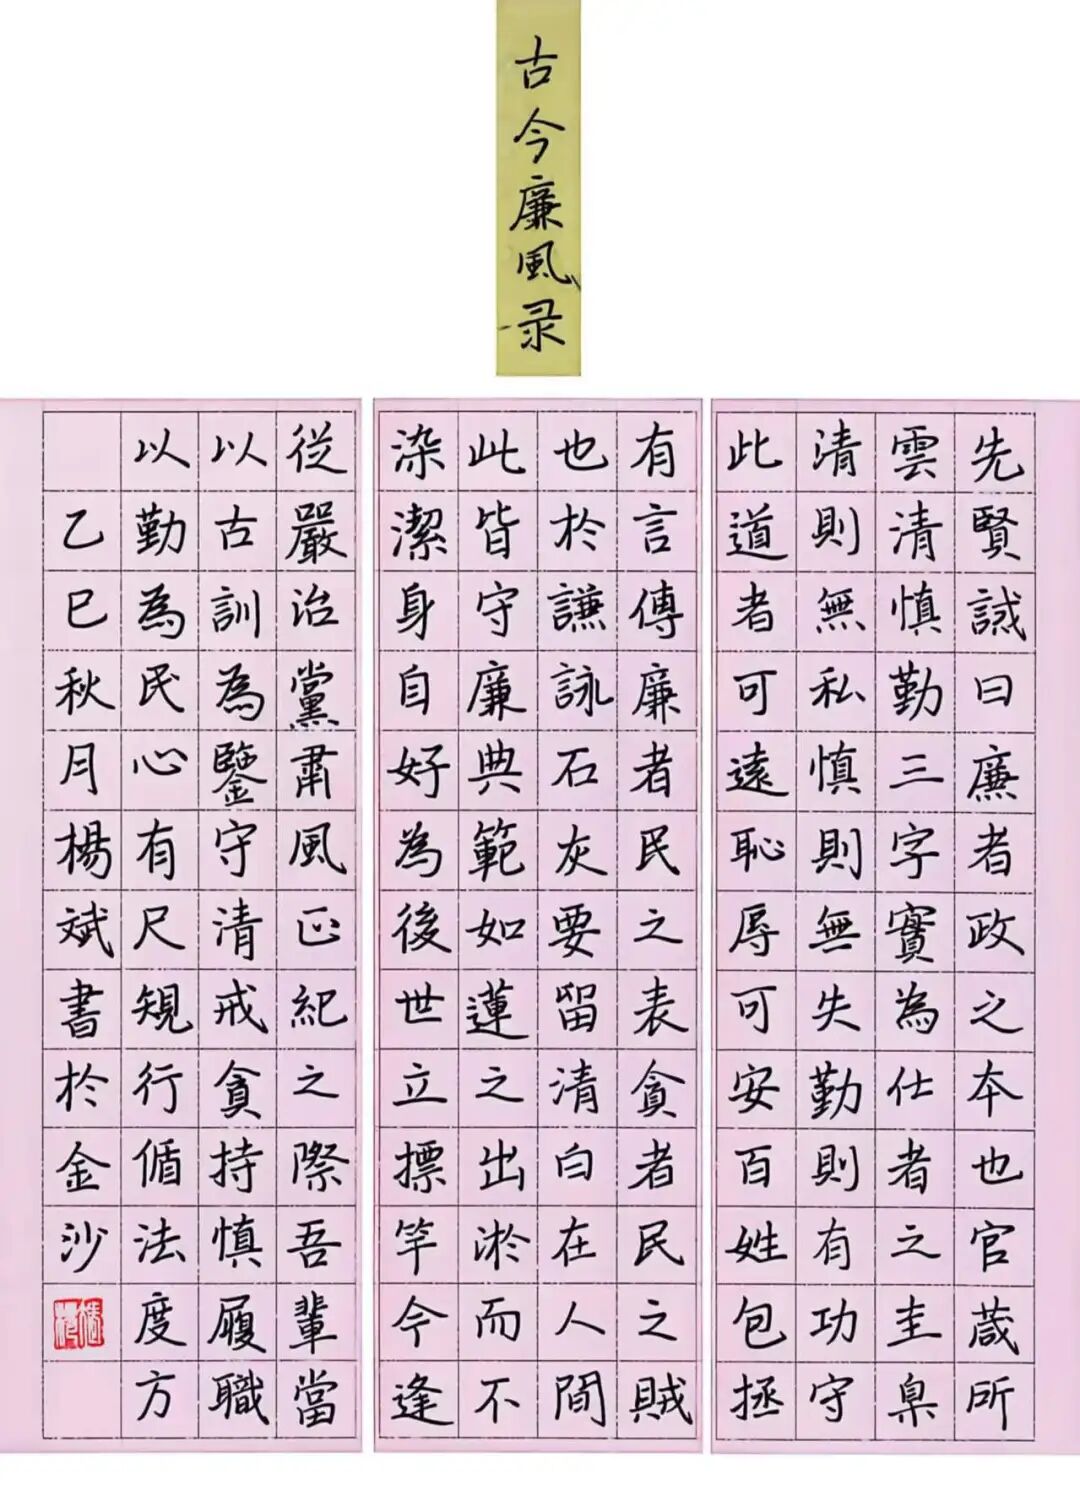 古今廉風录
先賢誡曰廉者政之本也官葴所
雲清慎勤三字實為仕者之圭臬
清則無私慎則無失勤則有功守
此道者可遠恥辱可安百姓包拯
有言傳廉者民之表貪者民之賊
也於謙詠石灰要留清白在人間
此皆守廉典範如蓮之出淤而不
染潔身自好為後世立摽竿今逢
從嚴治黨肅風正紀之際吾輩當
以古訓為鑒守清戒貪持慎履職
以勤為民心有尺規行循法度方
乙巳秋月楊斌書於金沙